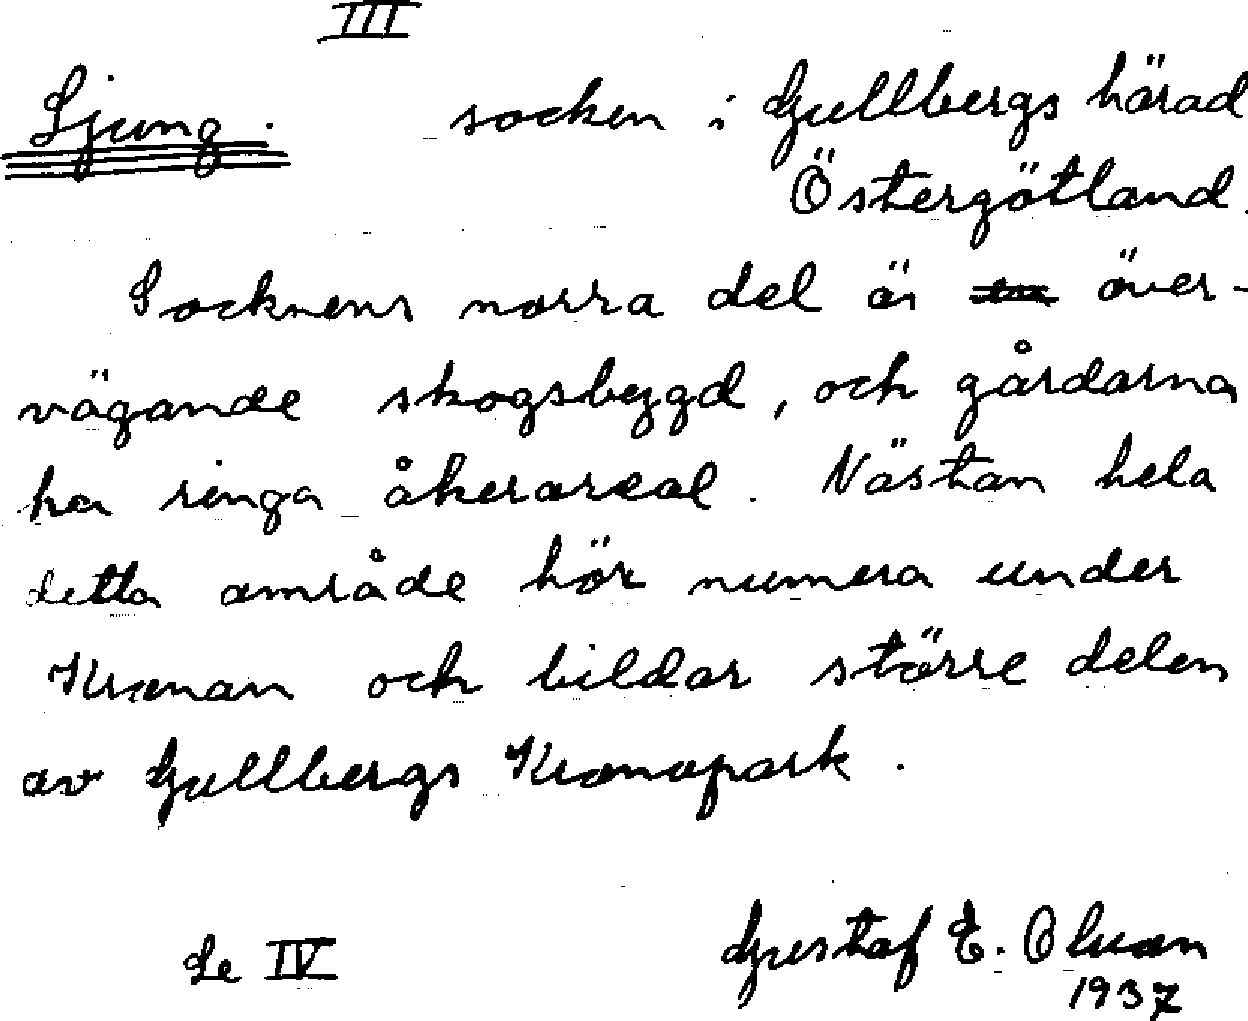 III
Ljung. socken i Gullbergs härad
Östergötland.
Socknens norra del är över-
vägande skogsbygd, och gårdarna
ha ringa åkerareal. Nästan hela
detta område hör numera under
Kronan och bildar större delen
av Gullbergs Kronopark.
Se IV
Gustaf E. Olsson
1937